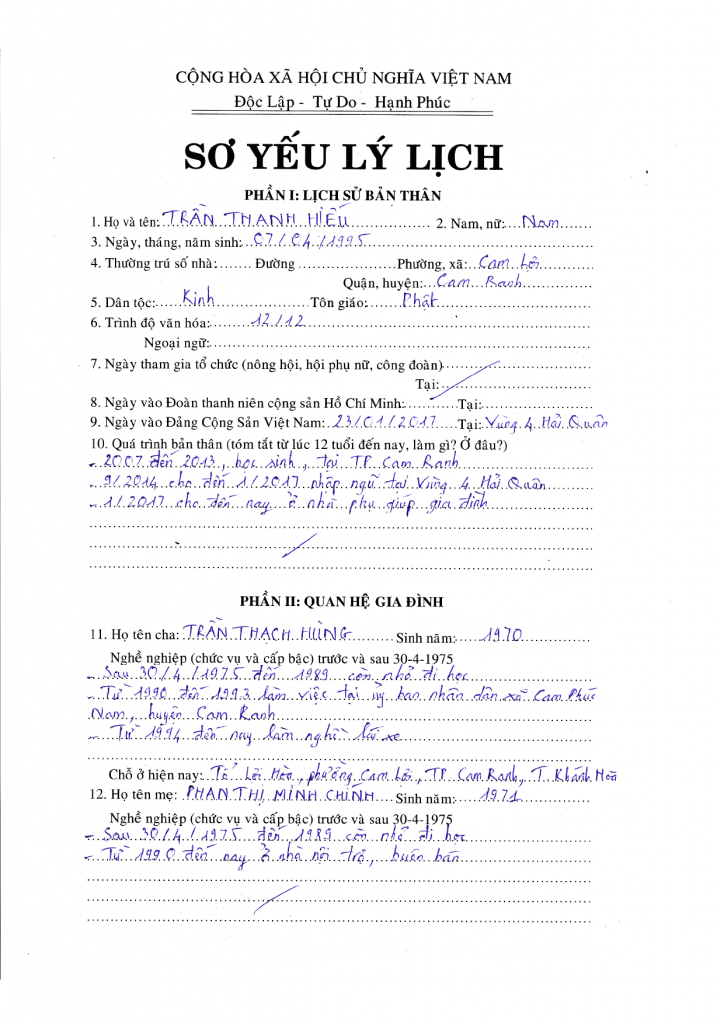 CỘNG HÒA XÃ HỘI CHỦ NGHĨA VIỆT NAM
Độc Lập - Tự Do - Hạnh Phúc
SƠ YẾU LÝ LỊCH
PHẦN I: LỊCH SỬ BẢN THÂN
1. Họ và tên: TRẦN THANH HIẾU 2. Nam, nữ: Nam
3. Ngày, tháng, năm sinh: 07/04/1995
4. Thường trú số nhà: Đường Phường, xã: Cam Lợi
Quận, huyện: Cam Ranh
5. Dân tộc: Kinh Tôn giáo: Phật
6. Trình độ văn hóa: 12/12
Ngoại ngữ:
7. Ngày tham gia tổ chức (nông hội, hội phụ nữ, công đoàn)
Tại:
8. Ngày vào Đoàn thanh niên cộng sản Hồ Chí Minh: Tại:
9. Ngày vào Đảng Cộng Sản Việt Nam: 23/01/2017 Tại: Vùng 4 Hải Quân
10. Quá trình bản thân (tóm tắt từ lúc 12 tuổi đến nay, làm gì? Ở đâu?)
- 2007 đến 2013, học sinh, tại TP Cam Ranh
- 9/2014 cho đến 1/2017 nhập ngũ tại Vùng 4 Hải Quân
- 1/2017 cho đến nay ở nhà phụ giúp gia đình
PHẦN II: QUAN HỆ GIA ĐÌNH
11. Họ tên cha: TRẦN THẠCH HÙNG Sinh năm: 1970
Nghề nghiệp (chức vụ và cấp bậc) trước và sau 30-4-1975
- Sau 30/4/1975 đến 1989 còn nhỏ đi học
- Từ 1990 đến 1993 làm việc tại ủy ban nhân dân xã Cam Phúc
Nam, huyện Cam Ranh
- Từ 1994 đến nay làm nghề lái xe
Chỗ ở hiện nay: Tổ Lợi Hòa, phường Cam Lợi, TP Cam Ranh, T. Khánh Hoà
12. Họ tên mẹ: PHAN THỊ MINH CHÍNH Sinh năm: 1971
Nghề nghiệp (chức vụ và cấp bậc) trước và sau 30-4-1975
- Sau 30/4/1975 đến 1989 còn nhỏ đi học
- Từ 1990 đến nay ở nhà nội trợ, buôn bán